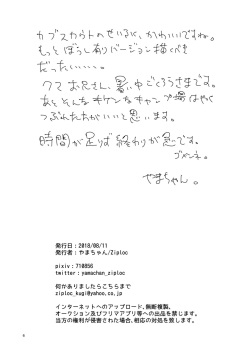 カブスカウトのせいふく、かわいいですね。
もっとぼうし有りバージョン描くべき
だったい・・・・。
クマお兄さん、暑い中ごくろうさまです。
あとそんなキケンなキャンプ場はやく
つぶれた方がいいと思います。
時間が足りず終わりが急です。
ゴメンネ。
やまちゃん。
発行日:2018/08/11
発行者:やまちゃん/Ziploc
pixiv:710856
twitter:yamachan_ziploc
何かありましたらこちらまで
ziploc_kugi@yahoo.co.jp
インターネットへのアップロード、無断複製、
オークション及びフリマアプリ等への出品を禁じます。
当方の権利が侵害された場合、相応の対処を致します。